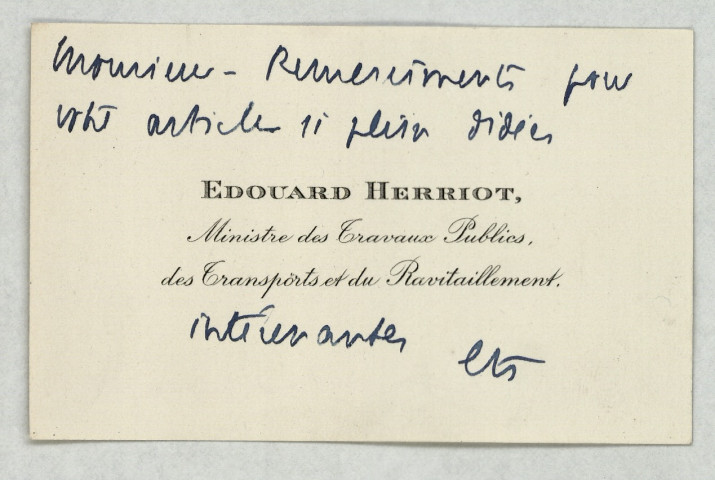 Monsieur - Remerciements pour
votre article si plein d'idées
EDOUARD HERRIOT,
Ministre des Travaux Publics,
des Transports et du Ravitaillement.
intéressantes